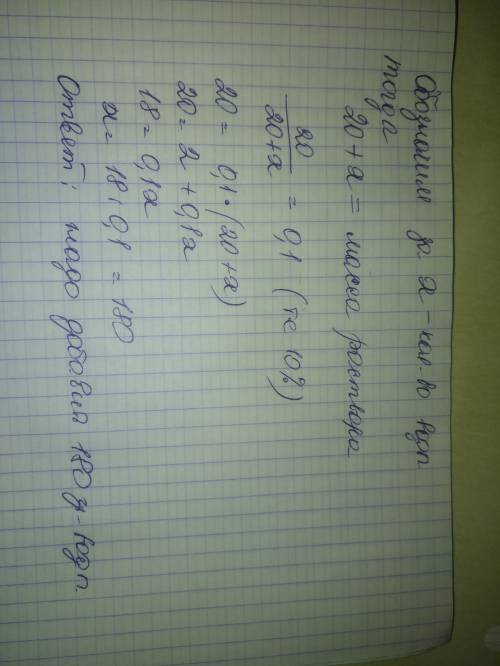 Обозначим за x - кол-во водп
тогда
20 + x = масса раствора
20/20+x = 0,1 (те 10%)
20 = 0,1 • (20 + x)
20 = 2 + 0,1x
18 = 0,1x
x = 18 : 0,1 = 180
Ответ: надо добавит 180 г - водп.